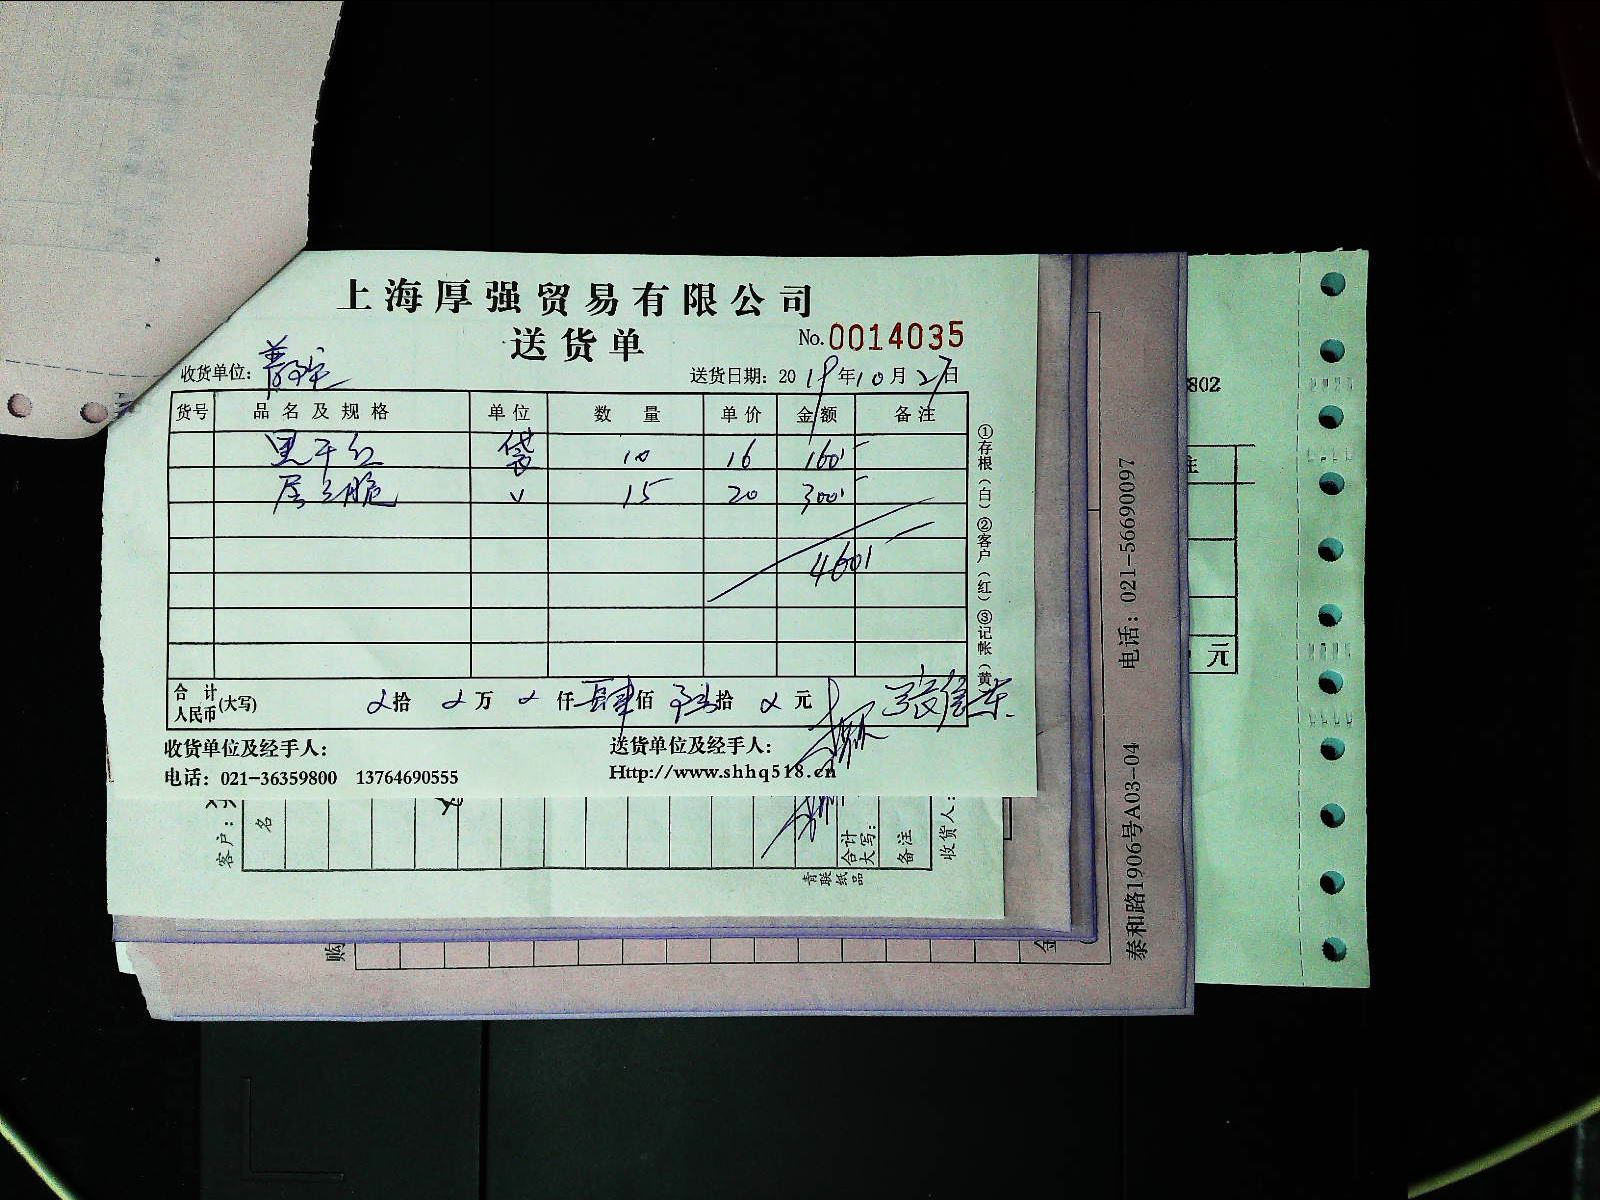 上海厚强贸易有限公司
送货单 No. 0014035
收货单位： 送货日期： 2019年10月27日
货号 品名及规格 单位 数量 单价 金额 备注
里干红 袋 10 16 160
15 20 300
460
合计人民币(大写) 拾 万 仟肆佰陆拾 元
收货单位及经手人： 送货单位及经手人：
电话：021-36359800 13764690555 Http://www.shhq518.cn
①存根（白）②客户（红）③记帐（黄
客户：
名
合计大写：
备注
收货人：
青联纸品
购
金
泰和路1906号A03-04 电话：021-56690097
802
注
元